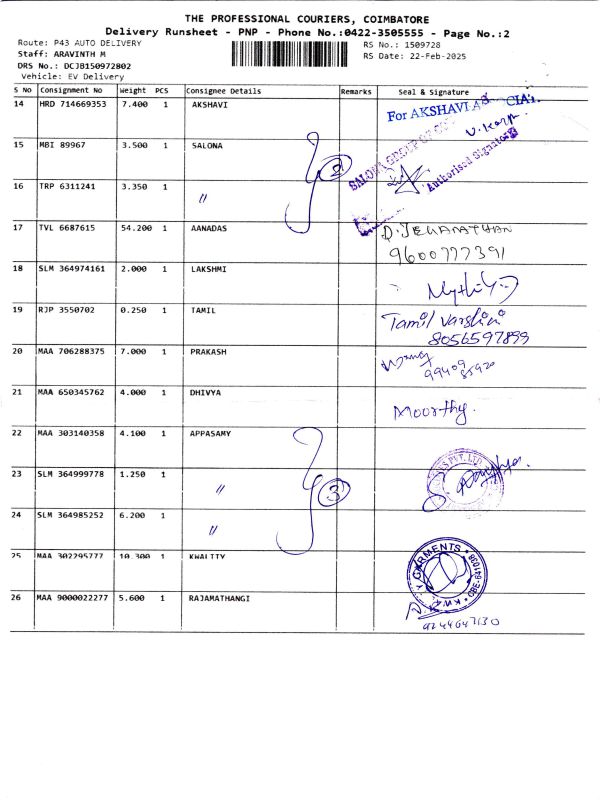 THE PROFESSIONAL COURIERS, COIMBATORE
Delivery Runsheet - PNP - Phone No.:0422-3505555 - Page No.:2
Route: P43 AUTO DELIVERY
RS No.: 1509728
Staff: ARAVINTH M
RS Date: 22-Feb-2025
DRS No.: DCJB150972802
Vehicle: EV Delivery
S No Consignment No Weight PCS Consignee Details Remarks Seal & Signature
14 HRD 714669353 7.400 1 AKSHAVI
For AKSHAVI
15 MBI 89967 3.500 1 SALONA
2
SALONA GROUP OF
Authorised Signatory
16 TRP 6311241 3.350 1 "
17 TVL 6687615 54.200 1 AANADAS
D. JEGANATHAN
9600777391
18 SLM 364974161 2.000 1 LAKSHMI
19 RJP 3550702 0.250 1 TAMIL
Tamil Varshini
8056597899
20 MAA 706288375 7.000 1 PRAKASH
99409
85920
21 MAA 650345762 4.000 1 DHIVYA
Moorthy.
22 MAA 303140358 4.100 1 APPASAMY
PVT. LTD
23 SLM 364999778 1.250 1 "
3
24 SLM 364985252 6.200 1 "
25 MAA 302295777 10.300 1 KWALITY
GARMENTS
CBE-641038
26 MAA 9000022277 5.600 1 RAJAMATHANGI
9244647130